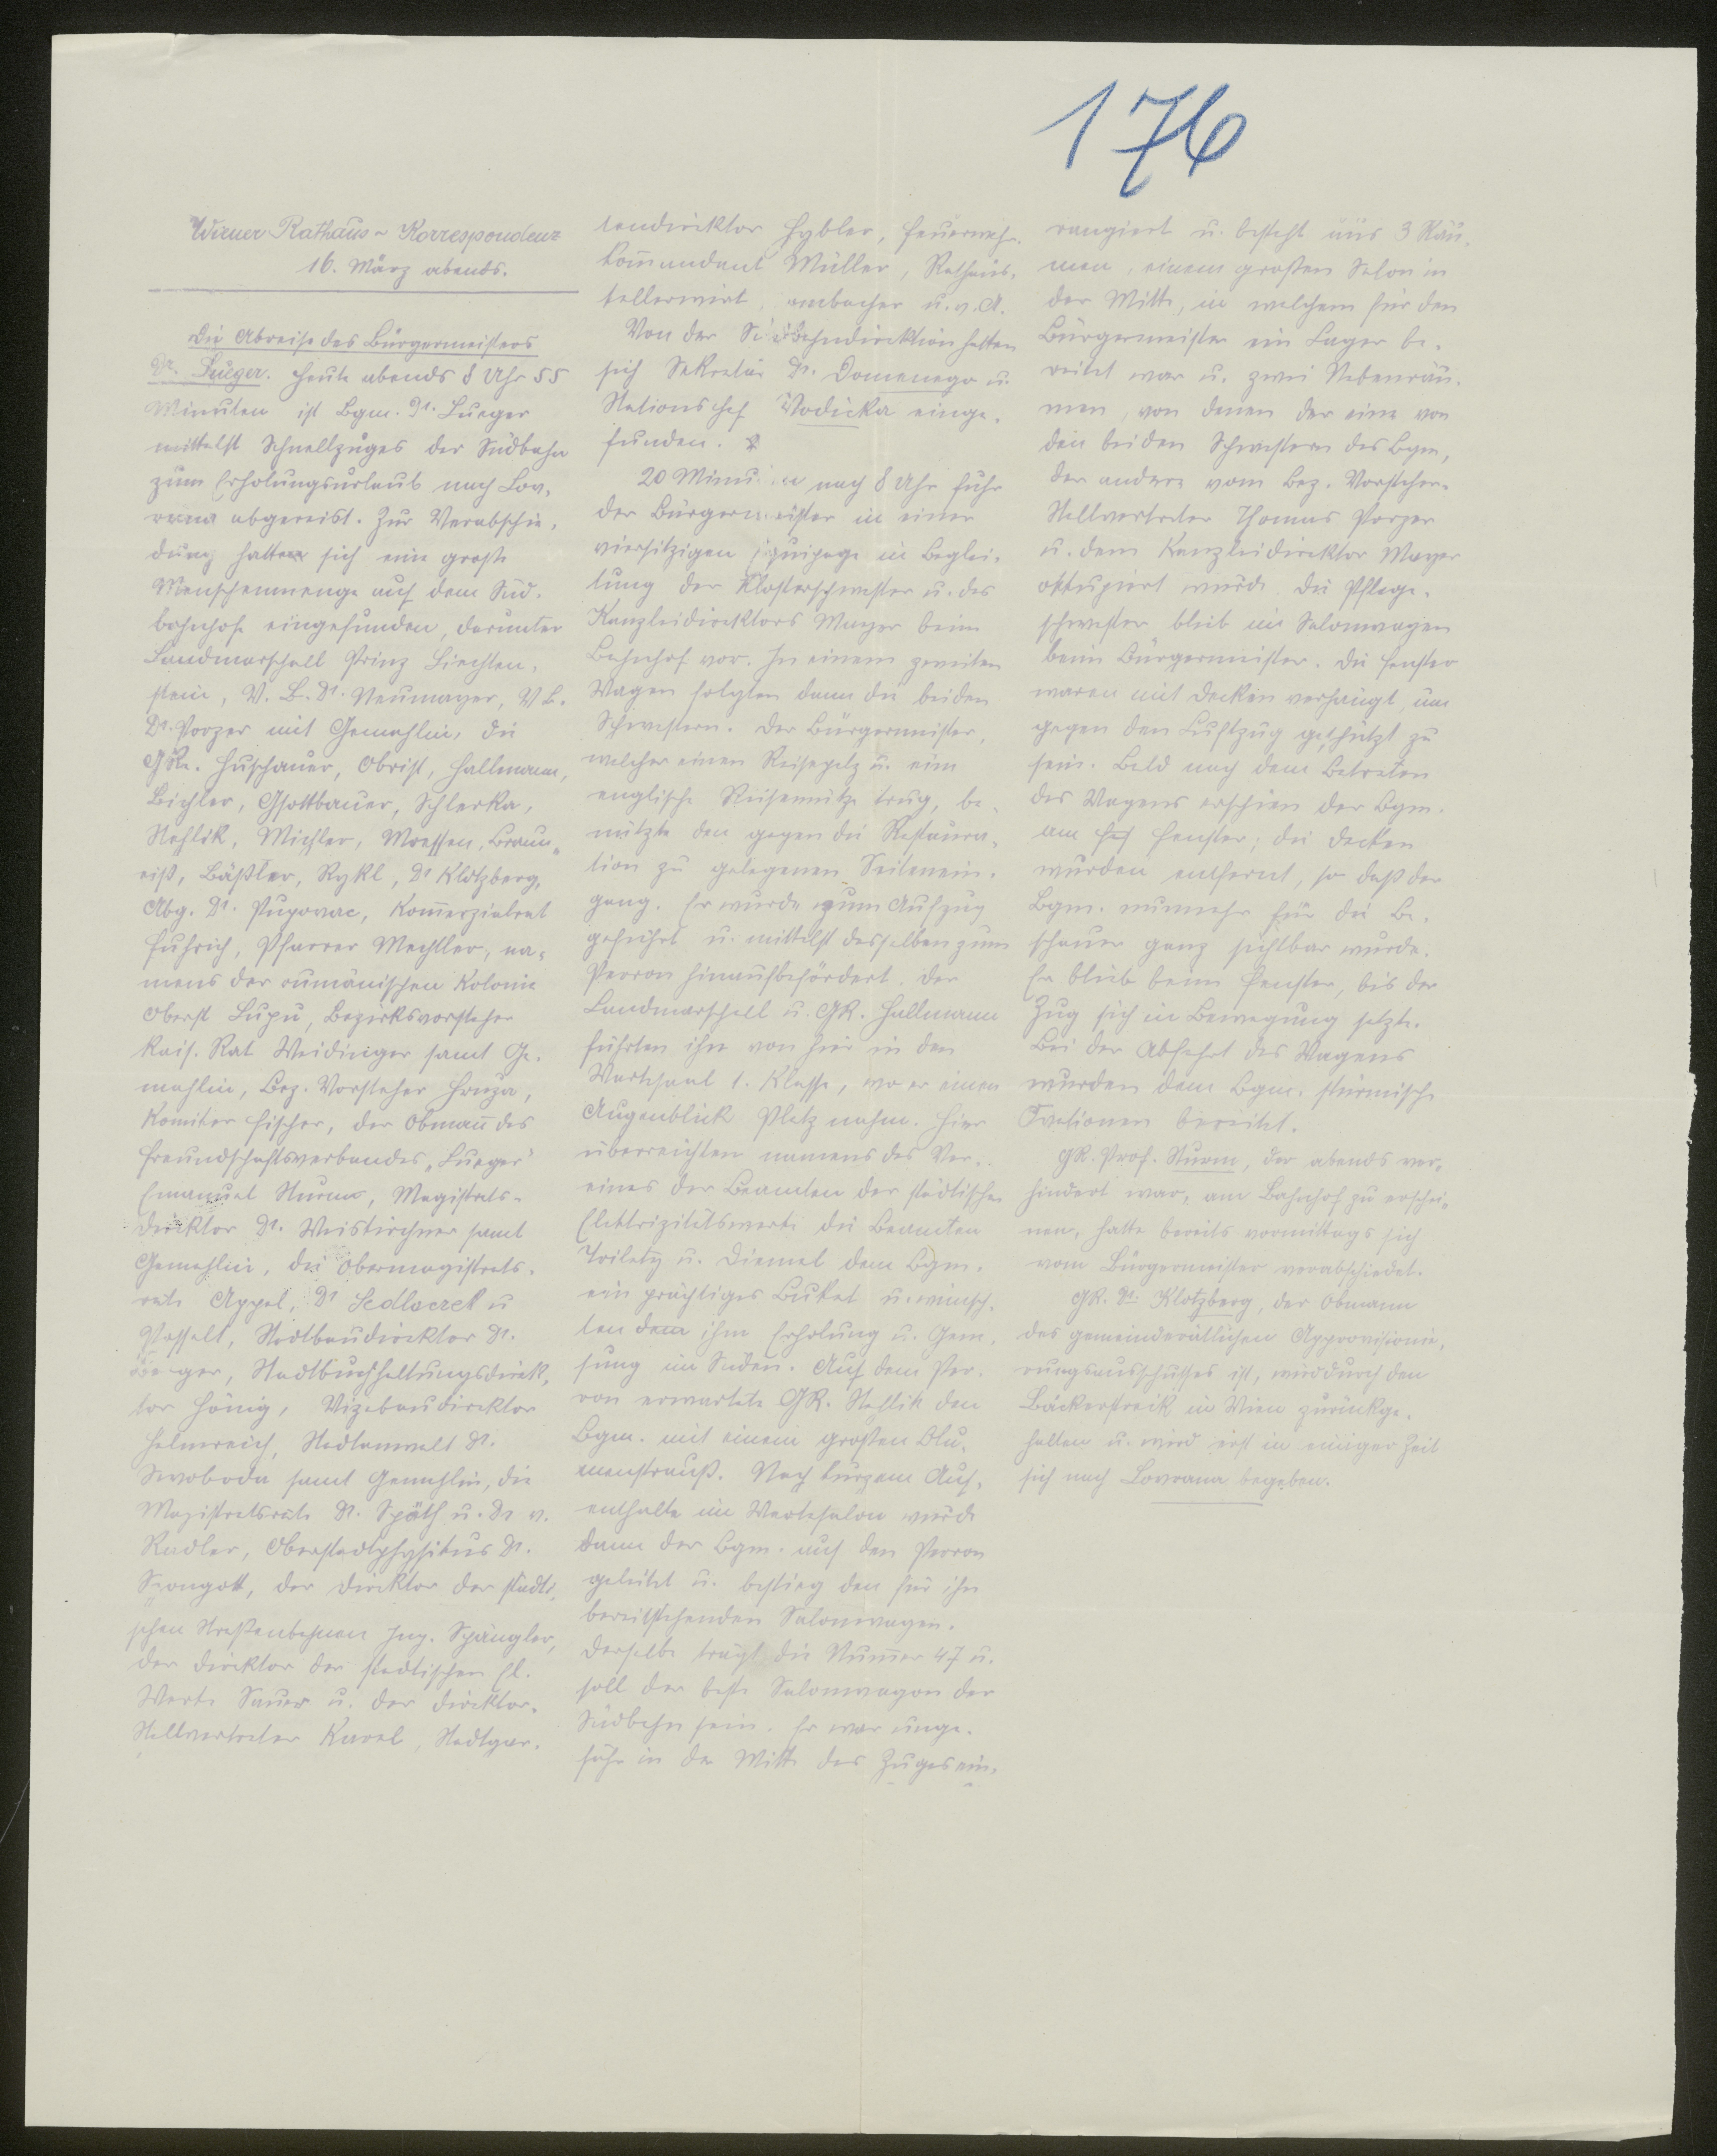 176
Wiener Rathaus-Korrespondenz
16. März abends.
Die Abreise des Bürgermeisters
Dr. Lueger. Heute abends 8 Uhr 55
Minuten ist Bgm. Dr. Lueger
mittelst Schnellzuges der Südbahn
zum Erholungsurlaub nach Lov-
rana abgereist. Zur Verabschie-
dung hatte sich eine große
Menschenmenge auf dem Süd-
bahnhofe eingefunden, darunter
Landmarschall Prinz Liechten-
stein, V. B. Dr. Neumayer, V. B.
Dr. Porzer mit Gemahlin, die
GRe. Huschauer, Obrist, Hallmann,
Bichler, Gsottbauer, Schlerka,
Stehlik, Michler, Moessen, Braun-
eiß, Bäßler, Rykl, Dr Klotzberg,
Abg. Dr. Pupovac, Kom̄erzialrat
Fuhrich, Pfarrer Mechtler, na-
mens der rumänischen Kolonie
Oberst Lupu, Bezirksvorsteher
kais. Rat Weidinger samt Ge-
mahlin, Bez. Vorsteher Hruza,
Komiker Fischer, der Obman̄ des
Freundschaftsverbandes „Lueger"
Emanuel Sturm, Magistrats-
direktor Dr. Weiskirchner samt
Gemahlin, die Obermagistrats-
räte Appel, Dr Sedlaczek u
Posselt, Stadtbaudirektor Dr.
Berger, Stadtbuchhaltungsdirek-
tor Hönig, Vizebaudirektor
Helmreich, Stadtanwalt Dr.
Swoboda samt Gemahlin, die
Magistratsräte Dr. Späth u. Dr v.
Radler, Oberstadtphysikus Dr.
Szongott, der Direktor der städti-
schen Straßenbahnen Ing. Spängler,
der Direktor der städtischen El.
Werke Sauer u. der Direktor-
Stellvertreter Karel, Stadtgar-
tendirektor Hybler, Feuerwehr-
kom̄andant Müller, Rathaus-
kellerwirt ambacher u. v. A.
Von der Südbahndirektion hatten
sich Sekretär Dr. Domenego u.
Stationschef Vodicka einge-
funden.
20 Minuten nach 8 Uhr fuhr
der Bürgermeister in einer
viersitzigen Equipage in Beglei-
tung der Klosterschwester u. des
Kanzleidirektors Mayer beim
Bahnhof vor. In einem zweiten
Wagen folgten dann die beiden
Schwestern. Der Bürgermeister,
welcher einen Reisepelz u. eine
englische Reisemütze trug, be-
nützte den gegen die Restaura-
tion zu gelegenen Seitenein-
gang. Er wurde zum Aufzug
geführt u. mittelst desselben zum
Perron hinaufbefördert. Der
Landmarschall u. GR. Hallmann
führten ihn von hier in den
Wartesaal 1. Klasse, wo er einen
Augenblick Platz nahm. Hier
überreichten namens des Ver-
eines der Beamten der städtischen
Elektrizitätswerke die Beamten
Troilety u. Diemel dem Bgm.
ein prächtiges Buket u. wünsch-
ten dem ihm Erholung u. Gene-
sung im Süden. Auf dem Per-
ron erwartete GR. Stehlik den
Bgm. mit einem großen Blu-
menstrauß. Nach kurzem Auf-
enthalte im Wartesalon wurde
dann der Bgm. auf den Perron
geleitet u. bestieg den für ihn
bereitstehenden Salonwagen.
Derselbe trägt die Num̄er 47 u.
soll der beste Salonwagon der
Südbahn sein. Er war unge-
fähr in der Mitte des Zuges ein-
rangiert u. besteht aus 3 Räu-
men, einem großen Salon in
der Mitte, in welchem für den
Bürgermeister ein Lager be-
reitet war u. zwei Nebenräu-
men, von denen der eine von
den beiden Schwestern des Bgm,
der andere vom Bez. Vorsteher-
Stellvertreter Thomas Porzer
u. dem Kanzleidirektor Mayer
okkupiert wurde. Die Pflege-
schwester blieb im Salonwagen
beim Bürgermeister. Die Fenster
waren mit Decken verhängt, um
gegen den Luftzug geschützt zu
sein. Bald nach dem Betreten
des Wagens erschien der Bgm.
am Fenster; die Decken
wurden entfernt, so daß der
Bgm. nunmehr für die Be-
schauer ganz sichtbar wurde.
Er blieb beim Fenster, bis der
Zug sich in Bewegung setzte.
Bei der Abfahrt des Wagens
wurden dem Bgm. stürmische
Ovationen bereitet.
GR. Prof. Sturm, der abends ver-
hindert war, am Bahnhof zu erschei-
nen, hatte bereits vormittags sich
vom Bürgermeister verabschiedet.
GR. Dr. Klotzberg, der Obmann
des gemeinderätlichen Approvisionie-
rungsausschusses ist, wird durch den
Bäckerstreik in Wien zurückge-
halten u. wird erst in einiger Zeit
sich nach Lovrana begeben.